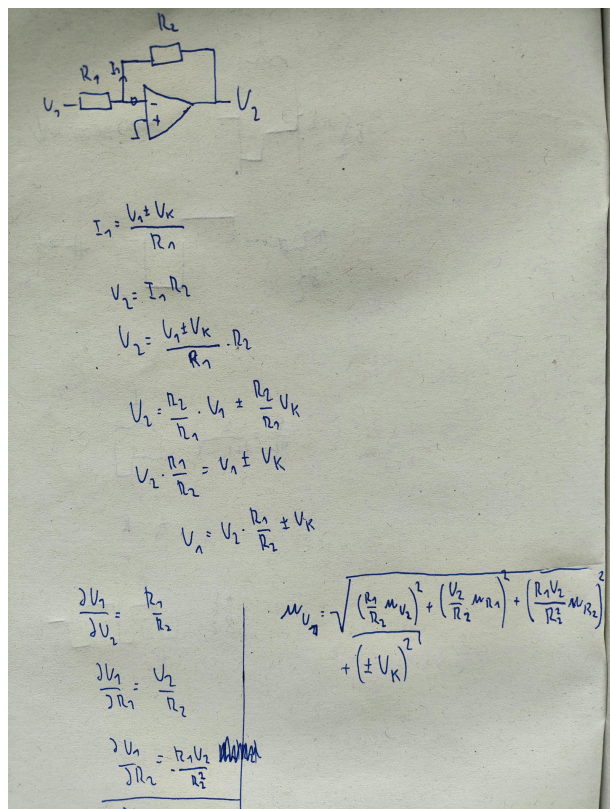 R₂
R₁ I₁
U₁ - + U₂
I₁ = (U₁ ± U_K) / R₁
U₂ = I₁ R₂
U₂ = (U₁ ± U_K) / R₁ · R₂
U₂ = R₂/R₁ · U₁ ± R₂/R₁ U_K
U₂ · R₁/R₂ = U₁ ± U_K
U₁ = U₂ · R₁/R₂ ± U_K
∂U₁/∂U₂ = R₁/R₂
∂U₁/∂R₁ = U₂/R₂
∂U₁/∂R₂ = - R₁U₂/R₂²
u_U₁ = √((R₁/R₂ u_U₂)² + (U₂/R₂ u_R₁)² + (R₁U₂/R₂² u_R₂)²
+ (± U_K)²)